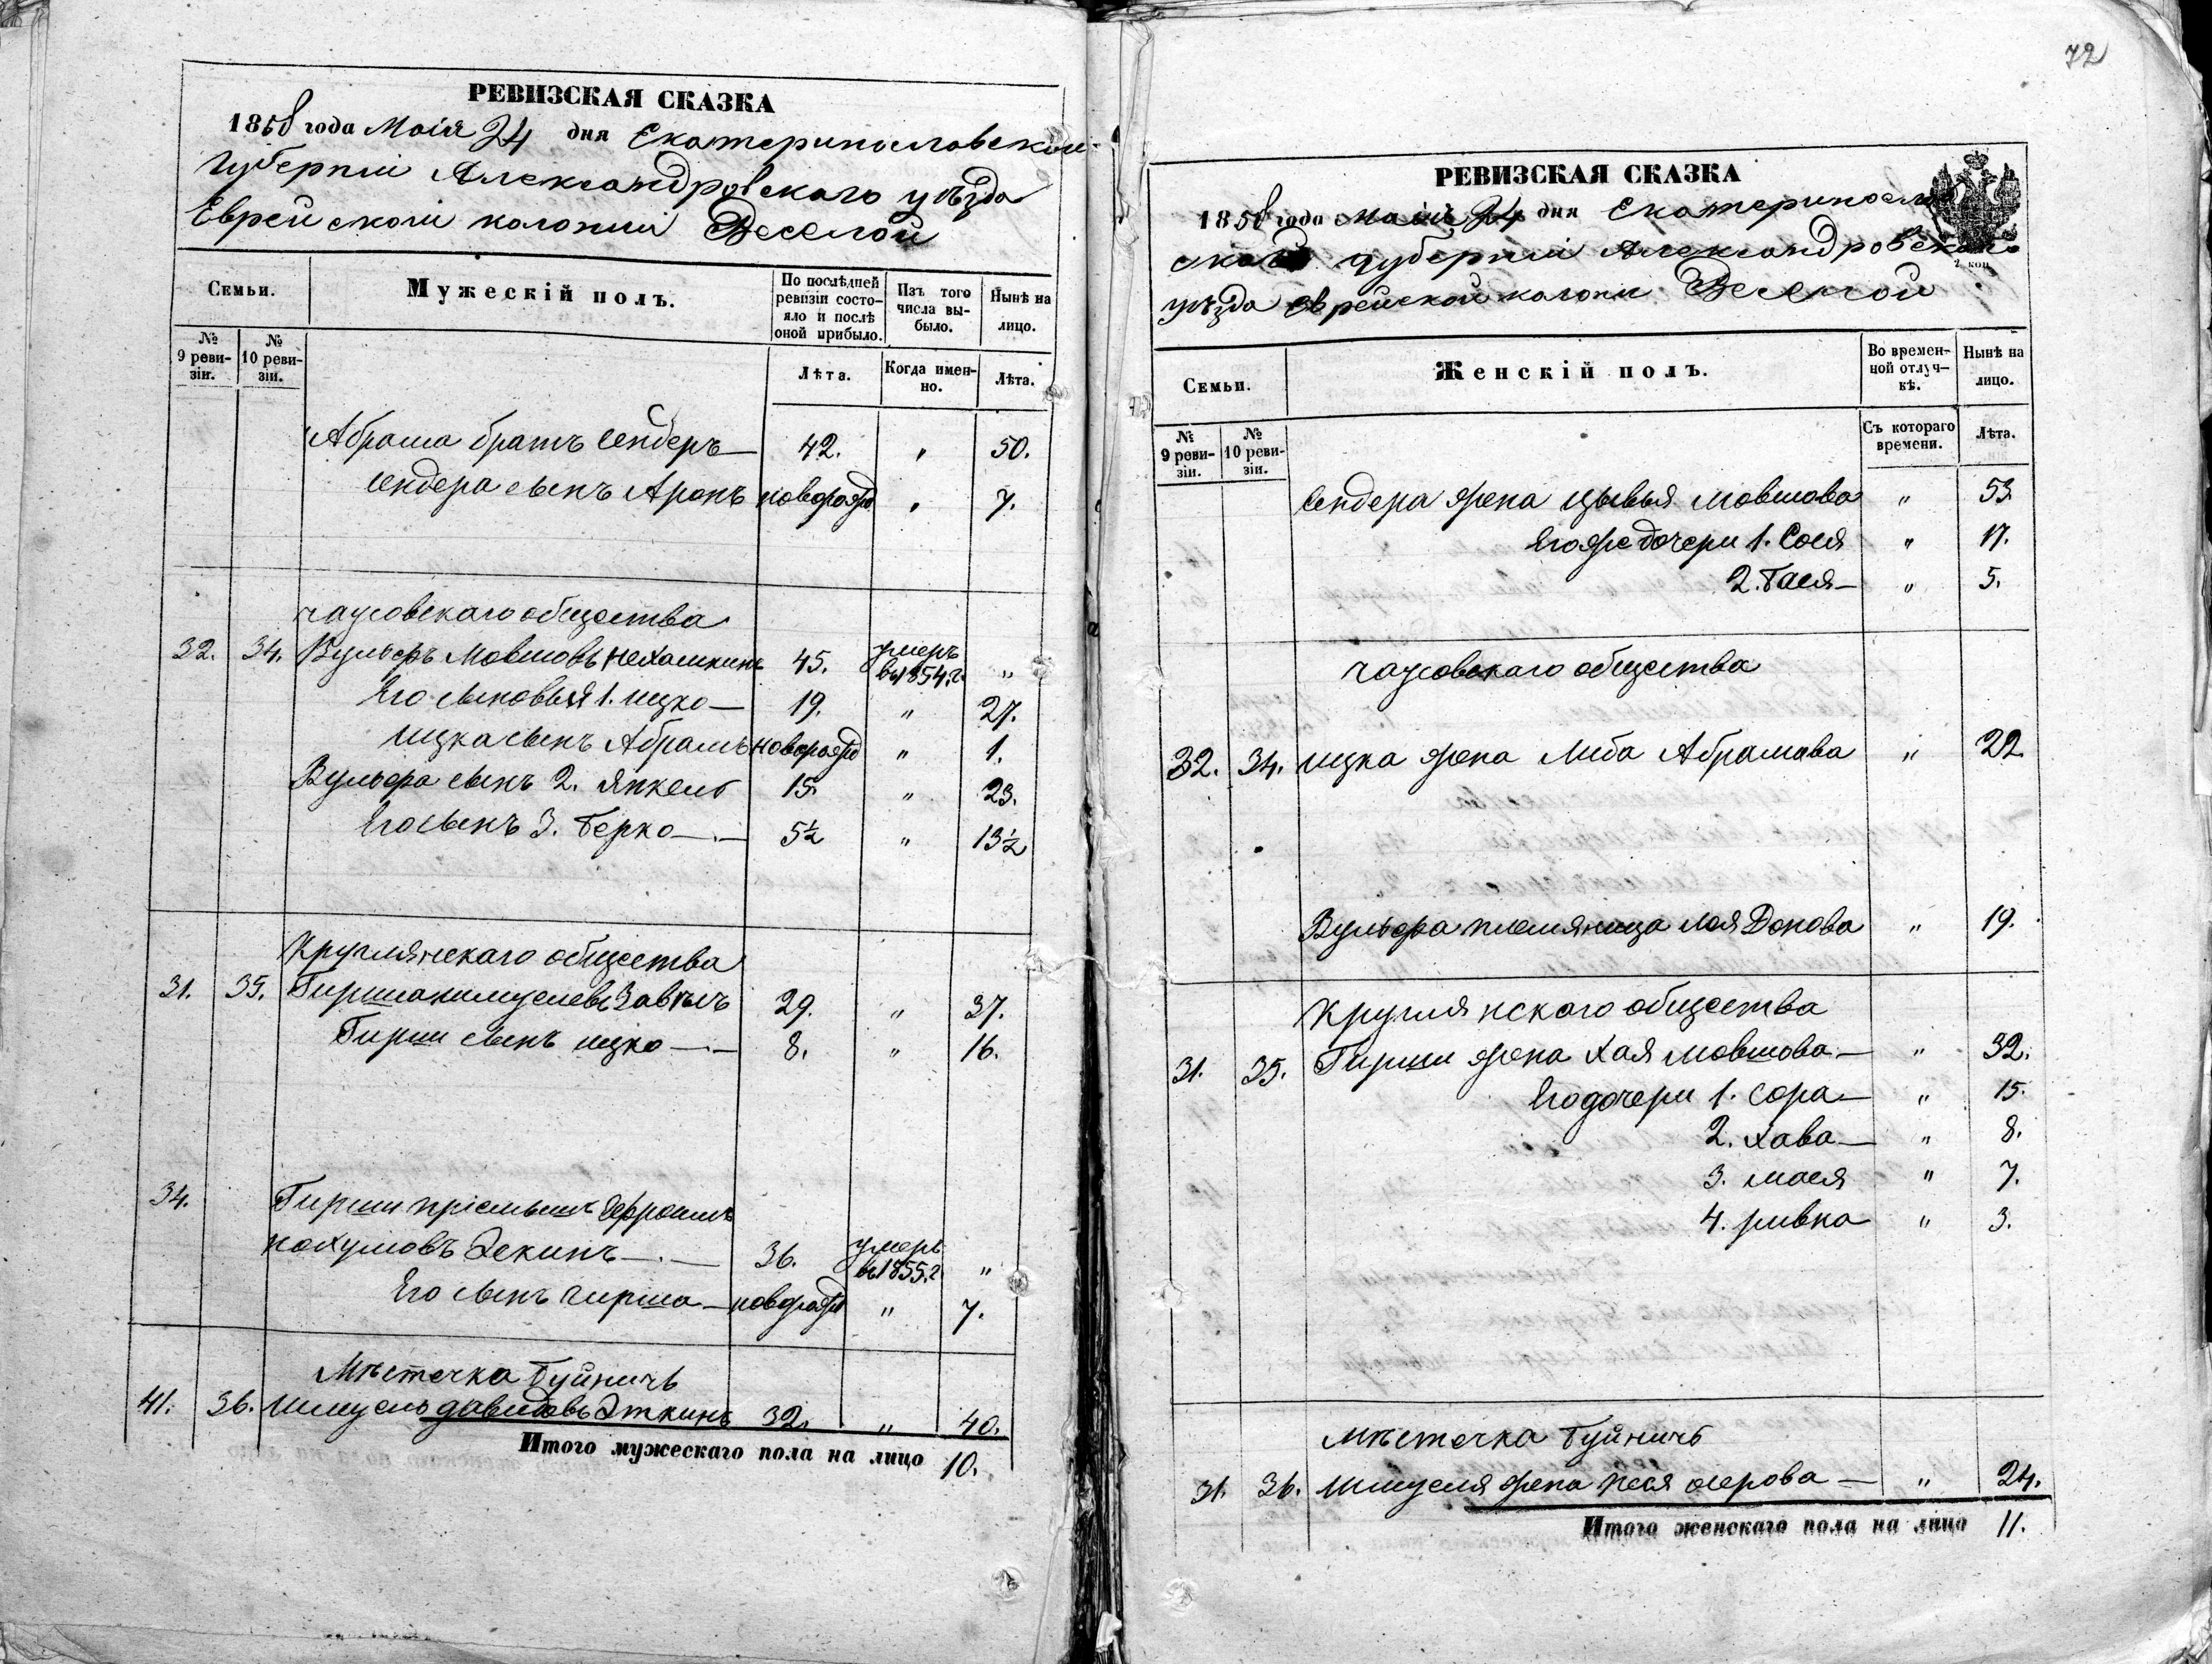 РЕВИЗСКАЯ СКАЗКА
1858 года Маія 24 дня Екатеринославской
Губерніи Александровского уѣзда
Еврейской колоніи Веселой
Семьи.
Мужескій полъ.
По послѣдней ревизіи состояло и послѣ оной прибыло.
Изъ того числа выбыло.
Нынѣ на лицо.
№ 9 ревизіи.
№ 10 ревизіи.
Лѣта.
Когда именно.
Лѣта.
Абрама братъ Сендеръ 42. " 50.
Сендера сынъ Аронъ новорожд " 7.
чаусовскаго общества
32. 34. Вульфъ Мовшовъ Нехамкинъ 45. умеръ въ 1854.г. "
Его сыновья 1. ицко 19. " 27.
ицка сынъ Абрамъ новорожд " 1.
Вульфа сынъ 2. Янкель 15. " 23.
Его сынъ 3. Берко 5½ " 13½
Круглянскаго общества
31. 35. Гирша шмуелевъ 29. " 37.
Гирши сынъ ицко 8. " 16.
34. Гирши пріемышъ Ефроимъ
нохумовъ Экинъ 36. умеръ въ 1855.г. "
Его сынъ гирша новорожд " 7.
Мѣстечка Буйничъ
41. 36. Шмуель давидовъ Эткинъ 32. " 40.
Итого мужескаго пола на лицо 10.
72
РЕВИЗСКАЯ СКАЗКА
1858 года маія 24 дня Екатеринослав
ской губерніи Александровского
уѣзда Еврейской колоніи Веселой
Семьи.
Женскій полъ.
Во временной отлучкѣ.
Нынѣ на лицо.
№ 9 ревизіи.
№ 10 ревизіи.
Съ котораго времени.
Лѣта.
Сендера жена Цывья мовшова " 53
Его же дочери 1. Сося " 17.
2. Бася " 5.
чаусовскаго общества
32. 34. ицка жена Либа Абрамова " 22
Вульфа племяница " 19.
Круглянскаго общества
31. 35. Гирши жена Хая мовшова " 32.
Его дочери 1. Сора " 15.
2. Хава " 8.
3. мася " 7.
4. ривка " 3.
мѣстечка Буйничъ
31. 36. Шмуеля жена Песя " 24.
Итого женскаго пола на лицо 11.